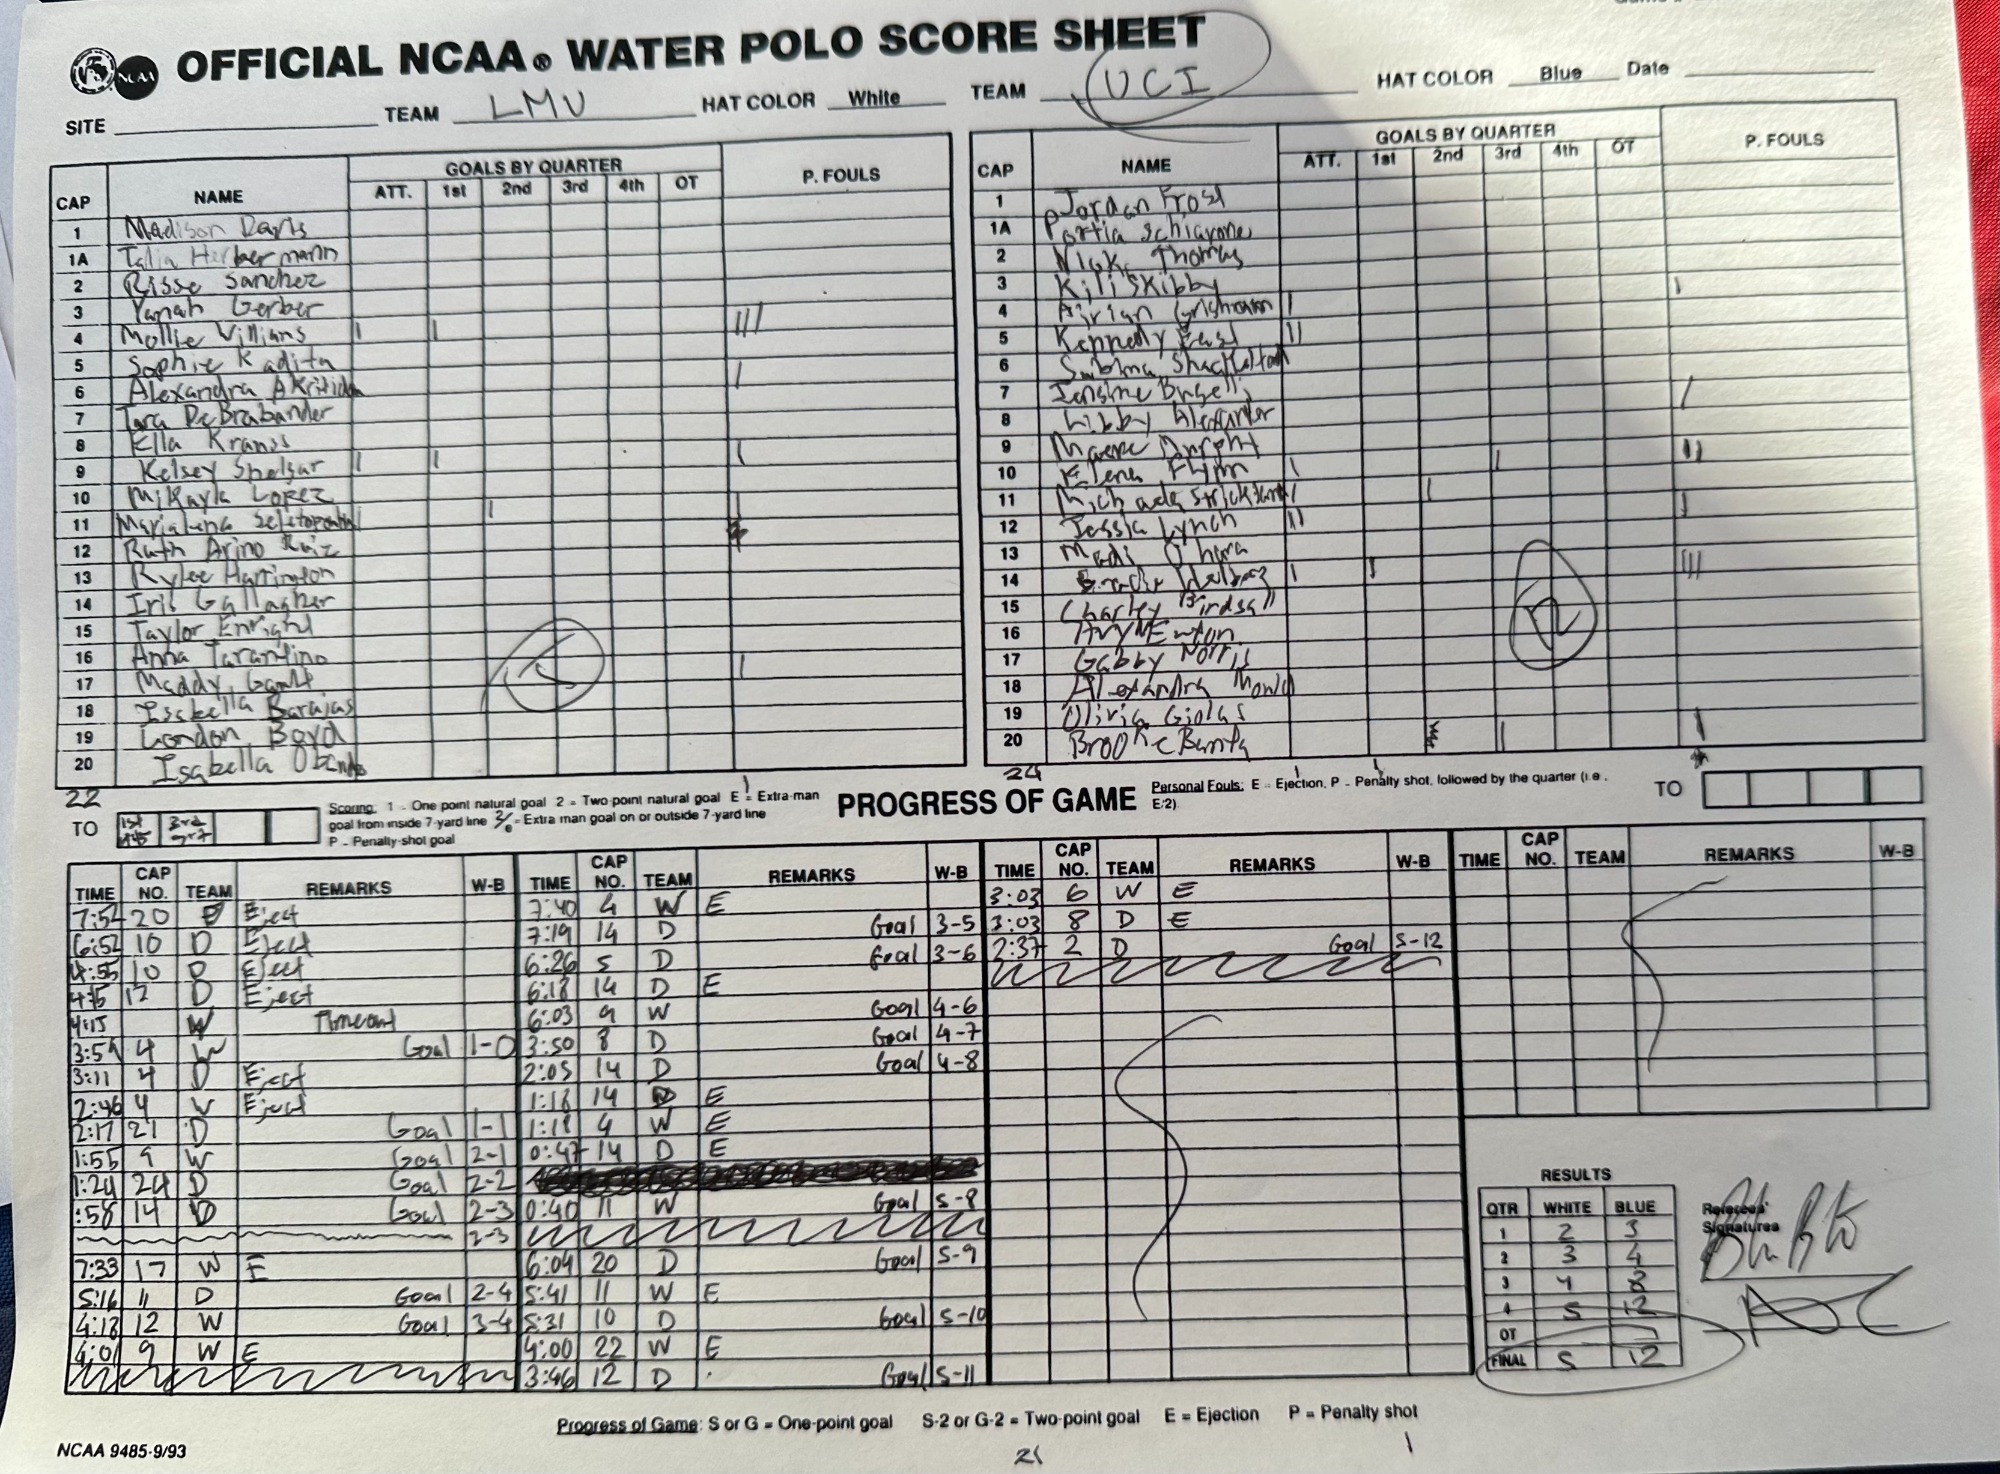 OFFICIAL NCAA® WATER POLO SCORE SHEET
SITE TEAM LMU HAT COLOR White TEAM UCI HAT COLOR Blue Date
CAP NAME GOALS BY QUARTER P. FOULS
ATT. 1st 2nd 3rd 4th OT
1 Madison Davis
1A Talia Herbermann
2 Risse Sanchez
3 Yanah Gerber
4 Mollie Williams
5 Sophie Kadita
6 Alexandra
7 Tara DeBrabander
8 Ella Kranss
9 Kelsey
10 Mikayla Lopez
11
12 Ruth Arino Ruiz
13 Rylee Harrington
14 Iris Gallagher
15 Taylor Enright
16 Anna Tarantino
17 Maddy Gault
18 Isabella Barajas
19 London Boyd
20 Isabella
22
5
CAP NAME GOALS BY QUARTER P. FOULS
ATT. 1st 2nd 3rd 4th OT
1 Jordan Frost
1A Portia Schiavone
2 Thomas
3 Kili Skibby
4
5 Kennedy
6
7
8 Libby Alexander
9
10 Elena Flynn
11
12 Lynch
13 Madi O'hara
14
15 Charley Birdsall
16
17 Gabby Norris
18 Alexandra
19 Olivia Giolas
20 Brooke
24
12
TO 1st 3rd
Scoring: 1 - One point natural goal 2 = Two-point natural goal E = Extra-man
goal from inside 7-yard line 2/e = Extra man goal on or outside 7-yard line
P - Penalty-shot goal
PROGRESS OF GAME
Personal Fouls: E - Ejection, P - Penalty shot, followed by the quarter (i.e.
E/2)
TO
TIME CAP NO. TEAM REMARKS W-B
7:52 20 Eject
6:52 10 D Eject
4:55 10 D Eject
4:15 12 D Eject
4:15 W Timeout
3:59 4 W Goal 1-0
3:11 4 D Eject
2:46 4 W Eject
2:17 21 D Goal 1-1
1:55 9 W Goal 2-1
1:24 24 D Goal 2-2
:58 14 D Goal 2-3
2-3
7:33 17 W E
5:16 11 D Goal 2-4
4:18 12 W Goal 3-4
4:01 9 W E
TIME CAP NO. TEAM REMARKS W-B
7:40 4 W E
7:19 14 D Goal 3-5
6:26 5 D Goal 3-6
6:18 14 D E
6:03 9 W Goal 4-6
3:50 8 D Goal 4-7
2:05 14 D Goal 4-8
1:18 14 D E
1:18 4 W E
0:47 14 D E
0:40 11 W Goal 5-8
6:04 20 D Goal 5-9
5:41 11 W E
5:31 10 D Goal 5-10
4:00 22 W E
3:46 12 D Goal 5-11
TIME CAP NO. TEAM REMARKS W-B
3:03 6 W E
3:03 8 D E
2:37 2 D Goal 5-12
TIME CAP NO. TEAM REMARKS W-B
RESULTS
QTR WHITE BLUE
1 2 3
2 3 4
3 4 8
4 5 12
OT
FINAL 5 12
Referees'
Signatures
Progress of Game: S or G = One-point goal S-2 or G-2 = Two-point goal E = Ejection P = Penalty shot
NCAA 9485-9/93
21